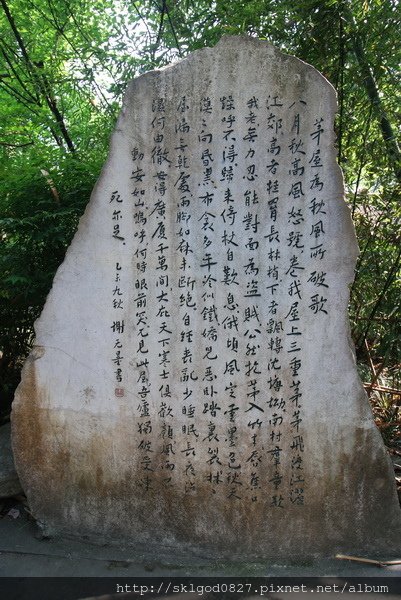 茅屋為秋風所破歌
八月秋高風怒號卷我屋上三重茅茅飛渡江灑
江郊高者挂罥長林梢下者飄轉沈塘坳南村群童欺
我老無力忍能對面為盜賊公然抱茅入竹去唇焦口
燥呼不得歸來倚杖自歎息俄頃風定雲墨色秋天
漠漠向昏黑布衾多年冷似鐵嬌兒惡卧踏裏裂牀牀
屋漏無乾處雨脚如麻未斷絕自經喪亂少睡眠長夜沾
濕何由徹安得廣廈千萬間大庇天下寒士俱歡顏風雨不
動安如山嗚呼何時眼前突兀見此屋吾廬獨破受凍
死亦足 乙未九秋 謝无量書
http://sklgod0827.pixnet.net/album